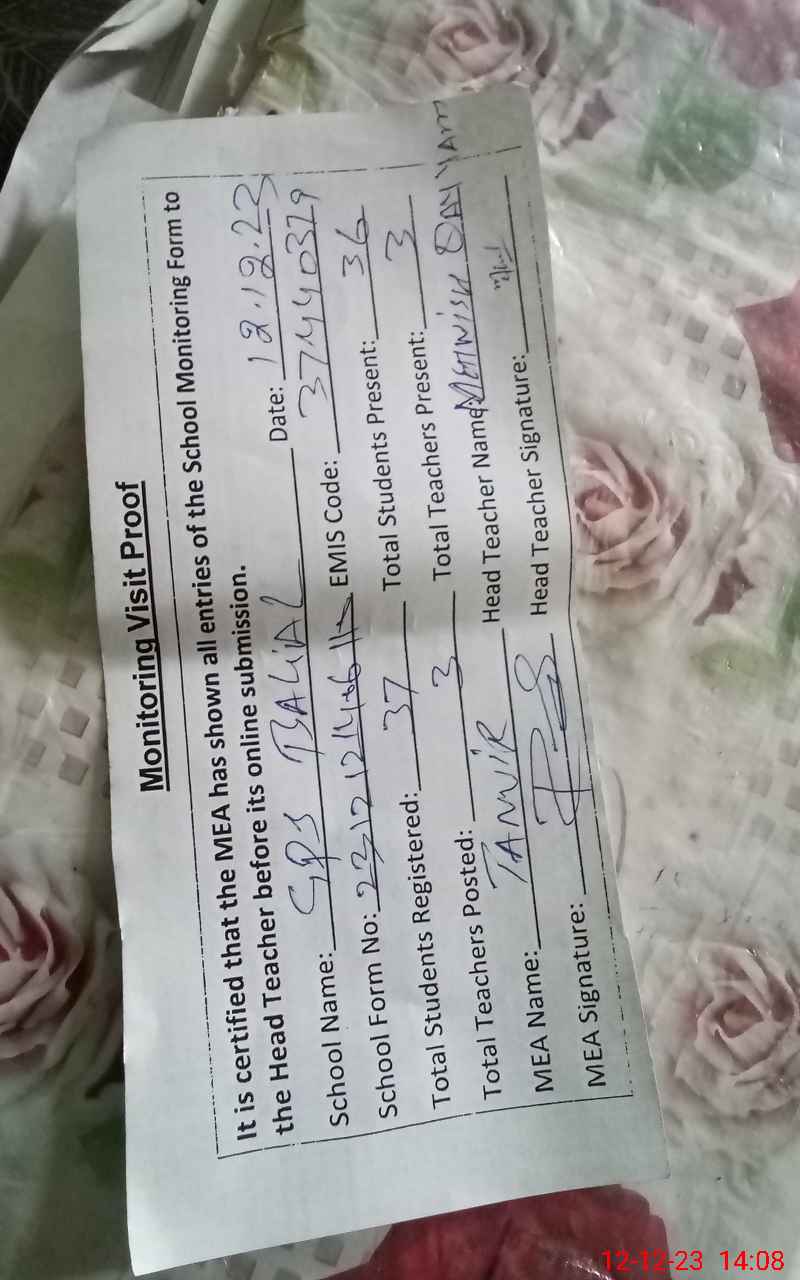 Monitoring Visit Proof
It is certified that the MEA has shown all entries of the School Monitoring Form to
the Head Teacher before its online submission.
School Name: GPS BALIAL Date: 12.12.23
School Form No: EMIS Code: 37440329
Total Students Registered: 37 Total Students Present: 36
Total Teachers Posted: 3 Total Teachers Present: 3
MEA Name: TANVIR Head Teacher Name: MEHWISH
MEA Signature: Head Teacher Signature:
12-12-23 14:08